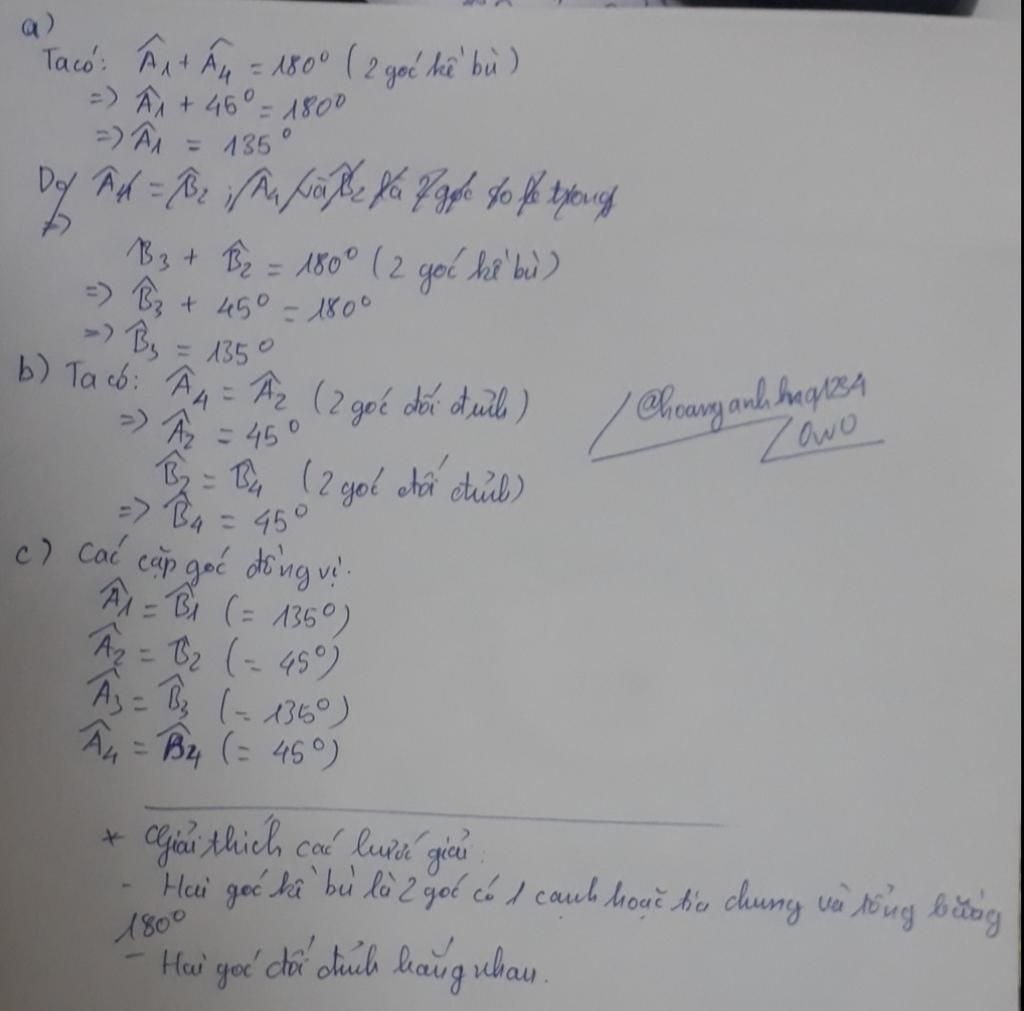 a)
Ta có: Â1 + Â4 = 180° (2 góc kề bù)
=> Â1 + 45° = 180°
=> Â1 = 135°
Do Â4 = B̂2 ; Â4 và B̂2 là 2 góc so le trong
=>
B3 + B̂2 = 180° (2 góc kề bù)
=> B̂3 + 45° = 180°
=> B̂3 = 135°
b) Ta có: Â4 = Â2 (2 góc đối đỉnh)
=> Â2 = 45°
B̂2 = B̂4 (2 góc đối đỉnh)
=> B̂4 = 45°
@hoanganhnq1234
OwO
c) Các cặp góc đồng vị.
Â1 = B̂1 (= 135°)
Â2 = B̂2 (= 45°)
Â3 = B̂3 (= 135°)
Â4 = B̂4 (= 45°)
* Giải thích các bước giải:
- Hai góc kề bù là 2 góc có 1 cạnh hoặc tia chung và tổng bằng
180°
- Hai góc đối đỉnh bằng nhau.